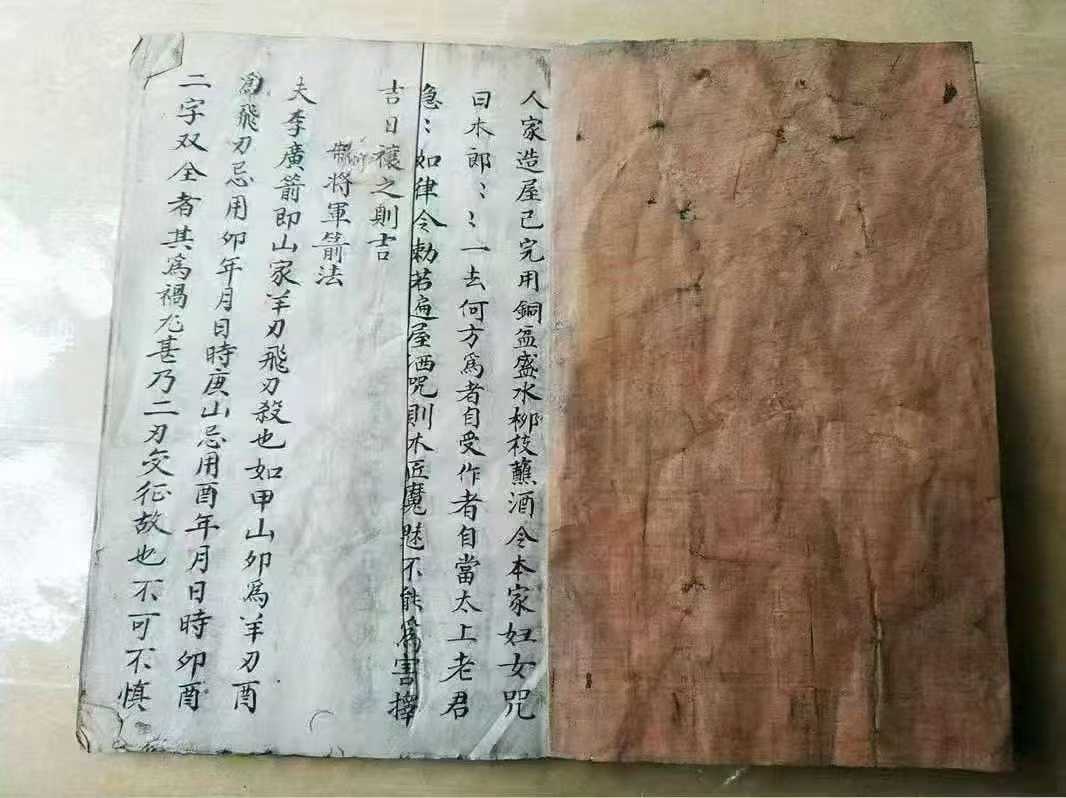 人家造屋已完用銅盆盛水柳枝蘸洒令本家妇女咒
曰木郎〻〻一去何方為者自受作者自當太上老君
急〻如律令勅若遍屋洒咒則木匠魔魅不能為害擇
吉日禳之則吉
將軍箭法
夫李廣箭即山家羊刃飛刃殺也如甲山夘為羊刃酉
為飛刃忌用夘年月日時庚山忌用酉年月日時夘酉
二字双全者其為禍尤甚乃二刃交征故也不可不慎